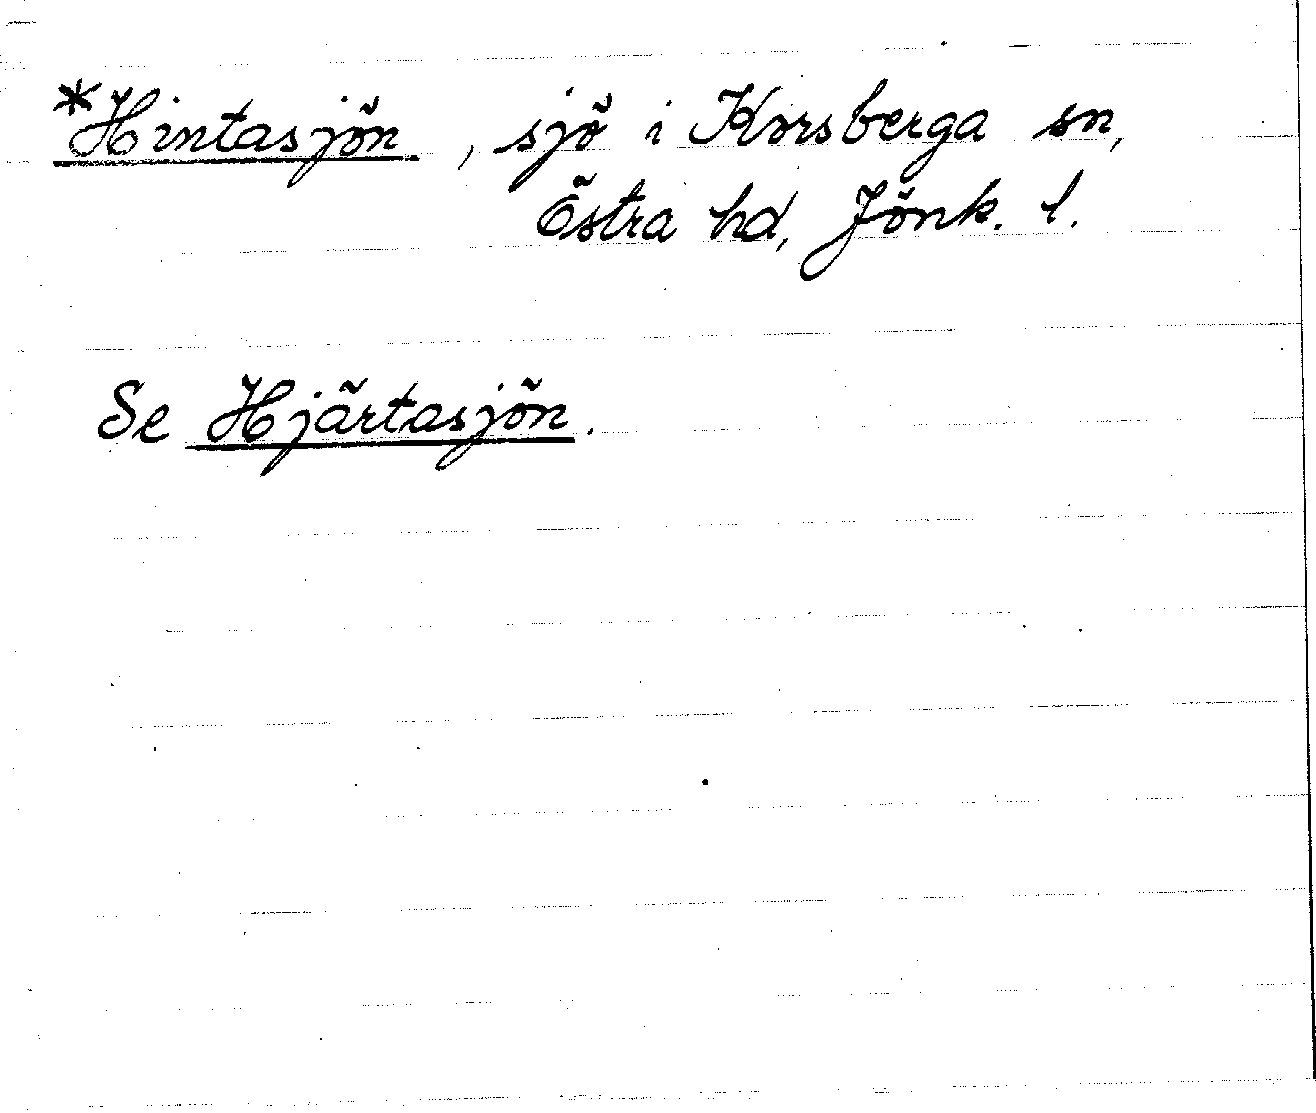 *Hintasjön, sjö i Korsberga sn,
Östra hd, Jönk. l.
Se Hjärtasjön.